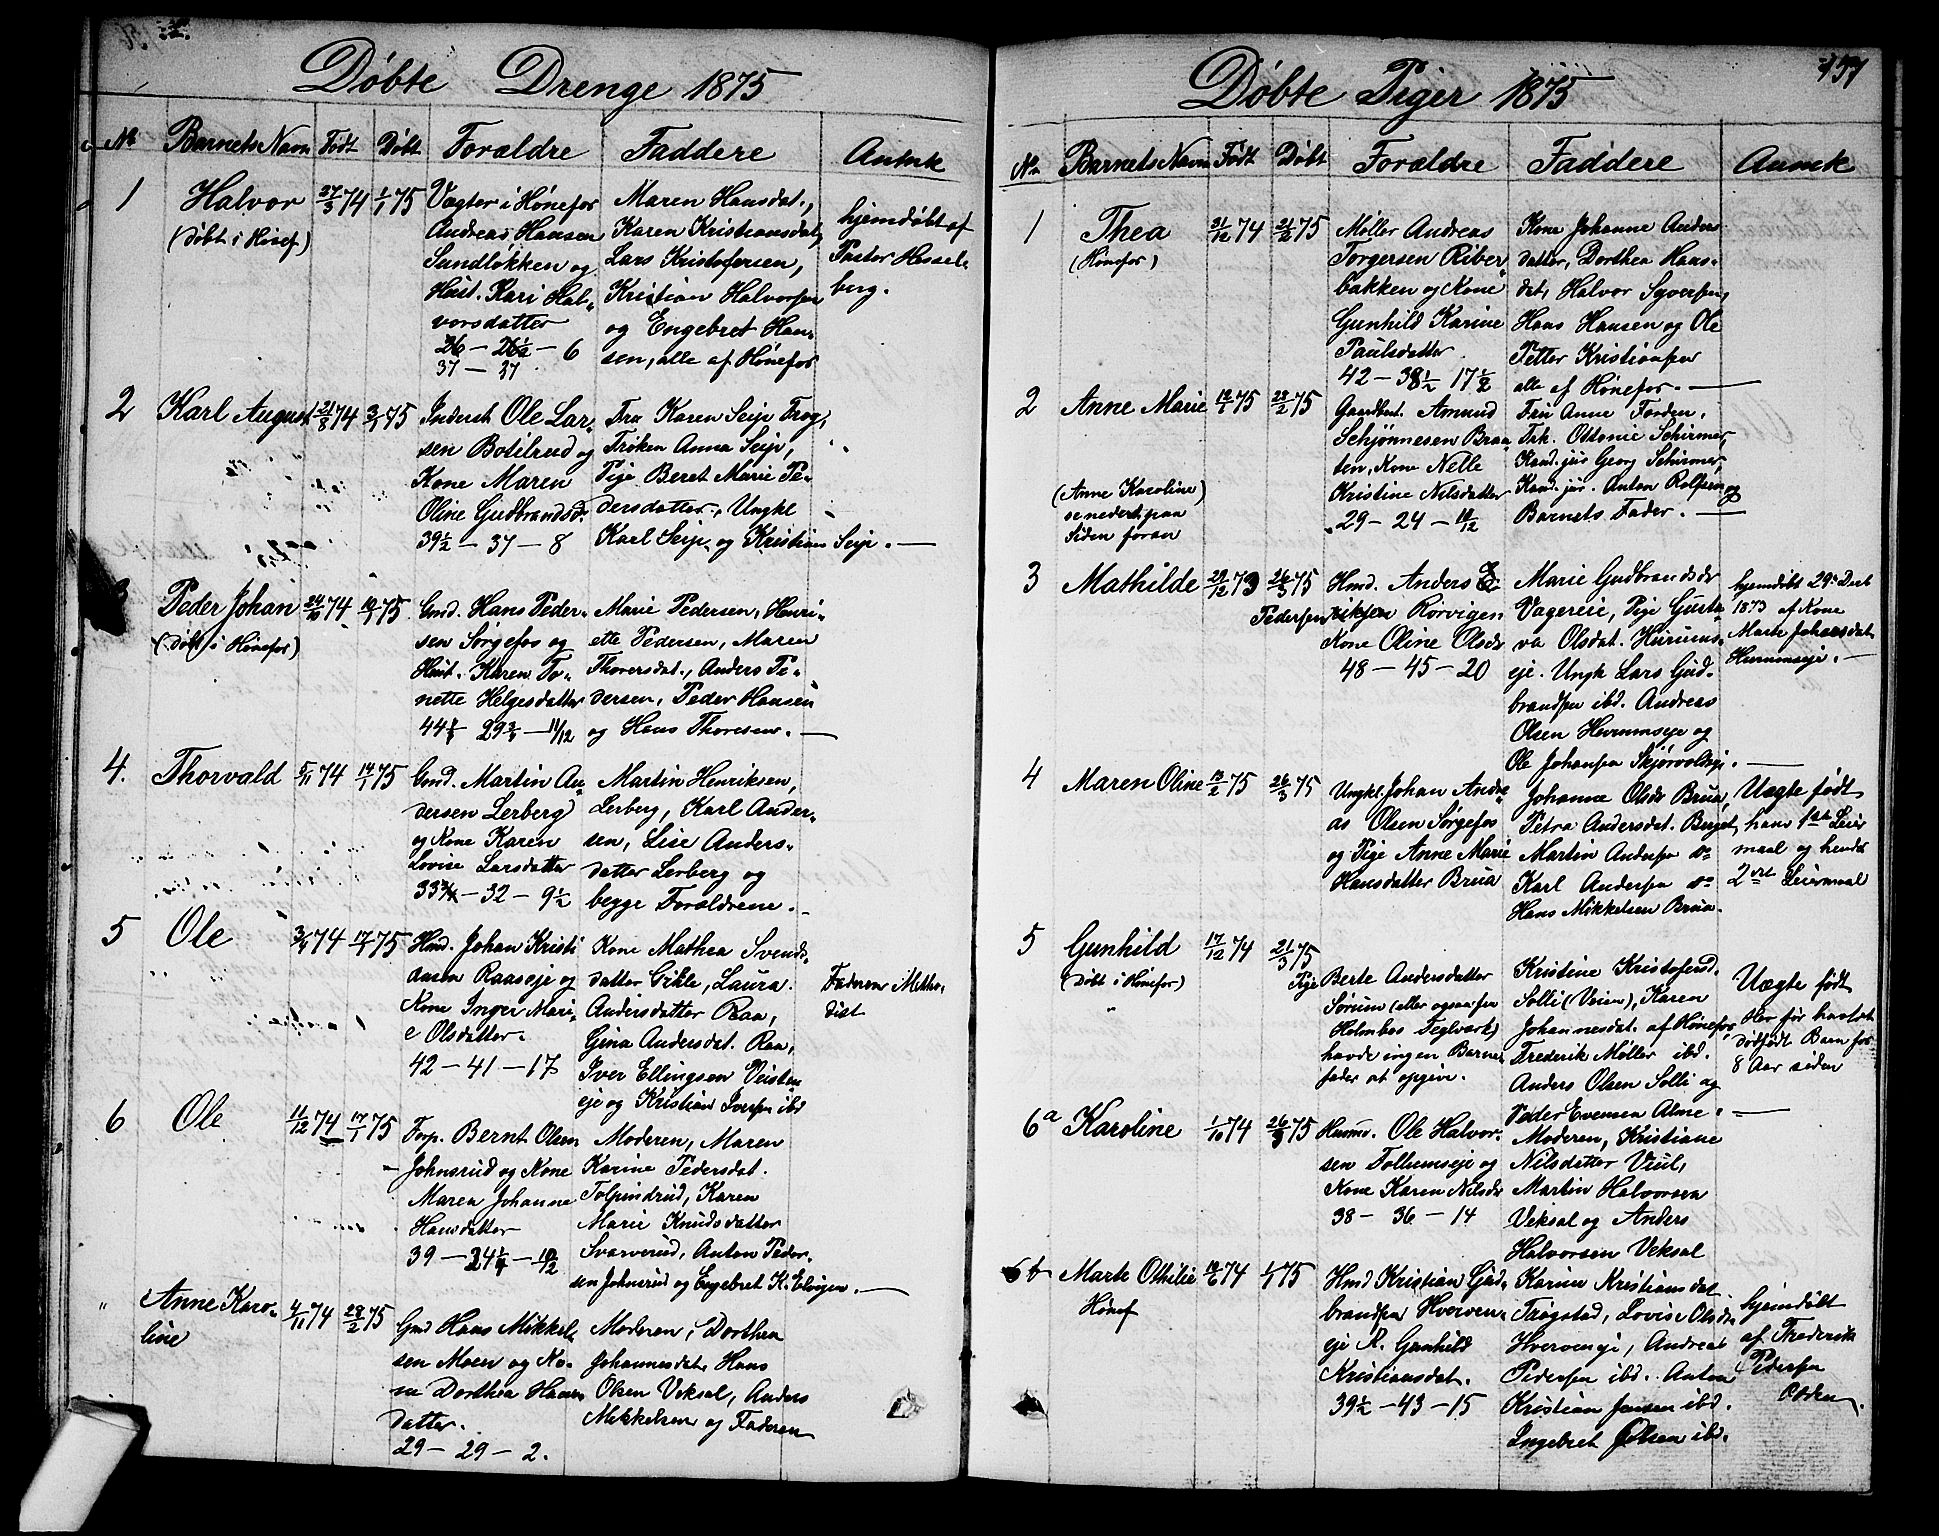 Døbte Drenge 1875
No Barnets Navn Født Døbt Forældre Faddere Anmrk
1 Halvor 27/3 74 1/1 75
(døbt i Hönef)
Vægter i Hønefos
Andreas Hansen
Sundløkken og
Hust. Kari Hal-
vorsdatter
26 — 26½ — 6
37 — 37
Maren Hansdat.,
Karen Kristiansdat,
Lars Kristofersen,
Kristian Halvorsen
og Engebret Han-
sen, alle af Hønefos
hjemdøbt af
Pastor Hessel-
berg.
2 Karl August 21/8 74 3/1 75
Inderst Ole Lar-
sen Botilrud og
Kone Maren
Oline Gudbrandsd.
39½ — 37 — 8
Fru Karen Seip Frog,
Frøken Anna Seip,
Pige Beret Marie Pe-
dersdatter, Ungkl
Karl Seip og Kristian Seip. —
3 Peder Johan 24/10 74 10/1 75
(Døbt i Hönefos)
Gmd. Hans Peder-
sen Sørgefos og
Hust. Karen To-
nette Helgesdatter
44 29 — 11/12
Marie Pedersen, Henri-
ette Pedersen, Maren
Thoresdat., Anders Pe-
dersen, Peder Hansen
og Hans Thoresen. —
4. Thorvald 5/11 74 14/1 75
Gmd. Martin An-
dersen Lerberg
og Kone Karen
Lovise Larsdatter
33¾ — 32 — 9½
Martin Henriksen,
Lerberg, Karl Ander-
sen, Lise Anders-
datter Lerberg og
begge Forældrene. —
5 Ole 74 17/1 75
Hmd. Johan Kristi
ansen Raaseje og
Kone Inger Mari-
e Olsdatter.
42 — 41 — 17
Kone Mathea Svends-
datter Gikle, Laura
Andersdatter Raa,
Gina Andersdat. Raa,
Iver Ellingsen Veisten
eje og Kristian Iversen ibd
Faderen Metho-
dist
6 Ole 11/12 74 17/1 75
Forp. Bernt Olsen
Johnsrud og Kone
Maren Johanne
Hansdatter
39 — 24¼ — 10/12
Moderen, Maren
Karine Pedersdat.
Tolpinrud, Karen
Marie Knudsdatter
Svarverud, Anton Peder-
sen Johnsrud og Engebret K. Elvigen. —
" Anne Karo-
line 4/11 74 28/2 75
Gmd Hans Mikkel-
sen Moen og Ko-
ne Dorthea Hansen
datter.
29 — 29 — 2.
Moderen, Dorthea
Johannesdat, Hans
Olsen Veksal, Anders
Mikkelsen og Faderen
157
Døbte Piger 1875
No Barnets Navn Født Døbt Forældre Faddere Anmrk
1 Thea 31/12 74 21/2 75
(Hönefos)
Møller Andreas
Torgersen Riber
bakken og Kone
Gunhild Karine
Paulsdatter
42 — 38½ 17½
Kone Johanne Anders
datter, Dorthea Hans-
dat, Halvor Syversen,
Hans Hansen og Ole
Petter Kristiansen
alle af Hønefos. —
2 Anne Marie 12/1 75 28/2 75
(Anne Karoline)
se nederst paa
Siden foran
Gaardbrt. Amund
Schjønnesen Braa
ten, Kone Nelle
Kristine Nilsdatter
29 — 24 — 10/12
Fru Anne Forden,
Frk. Ottonie Schirmer,
Kand. jur Georg Schirmer,
Kand. jur. Anton Rolfsen og
Barnets Fader. —
3 Mathilde 29/12 73 26/3 75
Hmd. Anders
Pedersen Rørvigen
Kone Oline Olsdr
48 — 45 — 20
Marie Gudbrandsdr
Vagereie, Pige Gusta
va Olsdat. Hurums-
eje. Ungk Lars Gud-
brandsen ibd. Andreas
Olsen Hurumseje og
Ole Johansen Skjørvoldseje. —
hjemdøbt 29. Decb
1873 af Kone
Marte Johansdat
Hurumseje. —
4 Maren Oline 13/2 75 26/3 75
Ungkl. Johan Andre
as Olsen Sørgefos
og Pige Anne Marie
Hansdatter Brua
Johanne Olsdr Brua,
Petra Andersdat. Berget,
Martin Andersen do
Karl Andersen do
Hans Mikkelsen Brua.
Uægte født
hans 1ste Leier
maal og hendes
2det Leiermaal
5 Gunhild 17/12 74 21/3 75
(Døbt i Hönefos)
Pige Berte Andersdatter
Sørum (eller ogsaa fra
Holmbos Teglværk)
havde ingen Barne
fader at opgive.
Kristine Kristofersd.
Solli (Veien), Karen
Johannesdat. af Hønefos,
Frederik Møller ibd.
Anders Olsen Solli og
Peder Evensen Alme. —
Uægte født
Her før havt et
dødfødt Barn for
8 Aar siden
6a Karoline 1/10 74 26/3 75
Husmd. Ole Halvor-
sen Follumseje og
Kone Karen Nilsdr
38 — 36 — 14
Moderen, Kristiane
Nilsdatter Viul,
Martin Halvorsen
Veksal og Anders
Halvorsen Veksal
6b Marte Othilie 74 1/1 75
Hönef
Hmd Kristian Gud-
brandsen Hverven-
eje K. Gunhild
Kristiansdat.
39½ — 43 — 15
Karine Kristiansdat.
Trøgstad, Lovise Olsdr
Hverveneje, Andreas
Pedersen ibd. Anton
Kristian Jensen ibd.
Ingebret Olsen ibd.
hjemdøbt
af Frederik
Pedersen